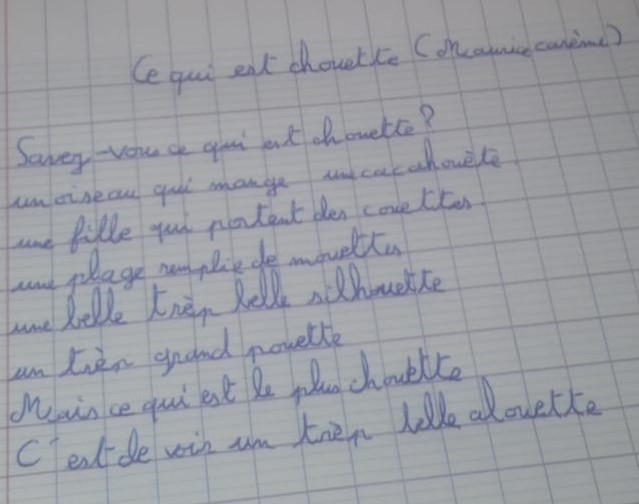 Ce qui est chouette (Maurice carème)
Savez-vous ce qui est chouette?
un oiseau qui mange un cacahouète
une fille qui portent des couettes
une plage remplie de mouettes
une belle très belle silhouette
un très grand pouette
Mais ce qui est le plus chouette
C'est de voir un très belle alouette